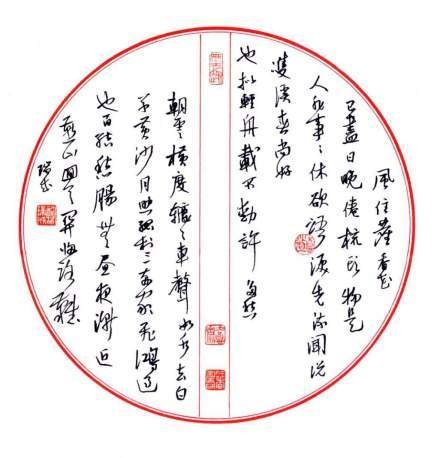 風住塵香花
已盡日晚倦梳头物是
人非事〻休欲語淚先流聞说
雙溪春尚好
也拟輕舟載不動許多愁
朝雲橫度轆〻車聲如水去白
草黄沙月照孤村三両家飛鴻過
也百結愁腸無昼夜漸近
燕山回首